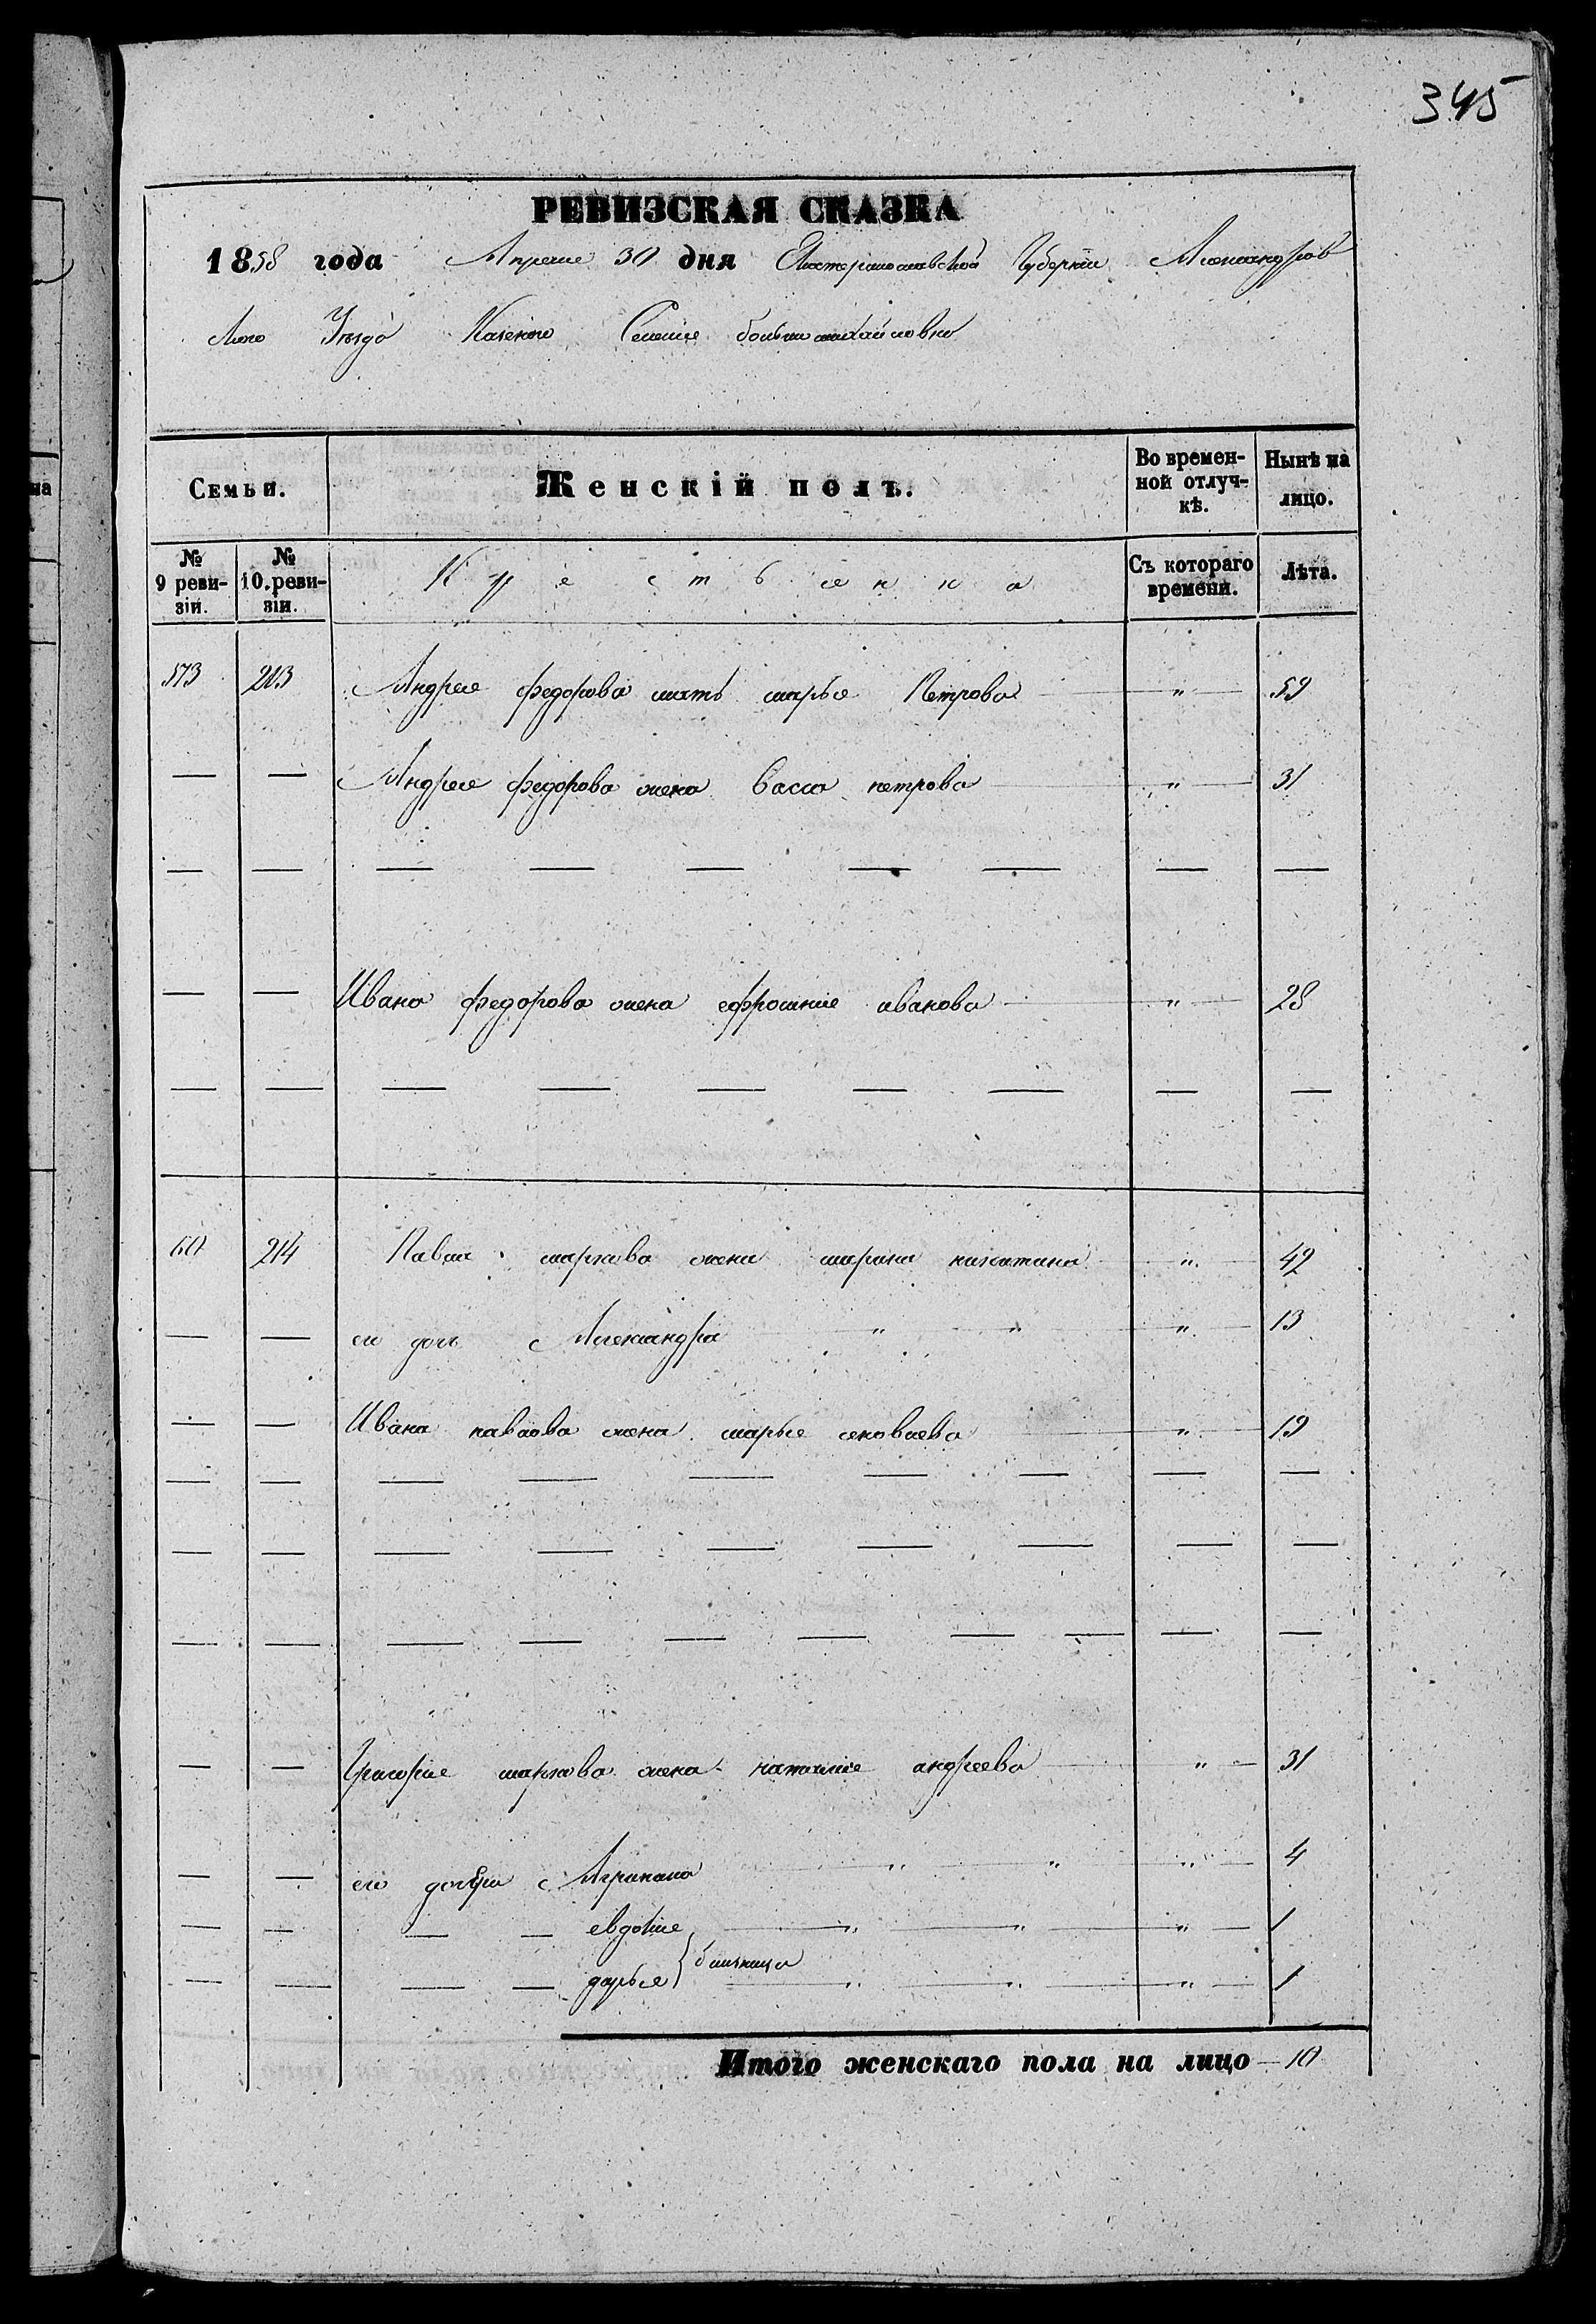 345
РЕВИЗСКАЯ СКАЗКА
1858 года Апреля 30 дня Екатеринославской Губернии Александров
скаго Уезда Казеного Селения большемихайловки
Семьи. Женскій полъ. Во времен-ной отлуч-кѣ. Нынѣ на лицо.
№ 9 реви-зіи. № 10. реви-зіи. Крестьенина Съ котораго времени. Лѣта.
573 213 Андрея федорова мать марья Петрова — " — 59
— — Андрея федорова жена Васса петрова — " — 31
— — — — — — — — —
— — Ивана федорова жена ефросиния иванова — " — 28
— — — — — — — — —
60 214 Павла маркова жена марина никитина — " — 42
— — его дочь Александра " " " 13
— — Ивана павлова жена марья яковлева — " — 19
— — — — — — — — —
— — — — — — — — —
— — — — — — — — — —
— — Григория маркова жена наталия андреева — " — 31
— — его дочери Агрипина " " " 4
— — — — евдокия " " " 1
близнецы
— — — — дарья " " " 1
Итого женскаго пола на лицо — 10
на